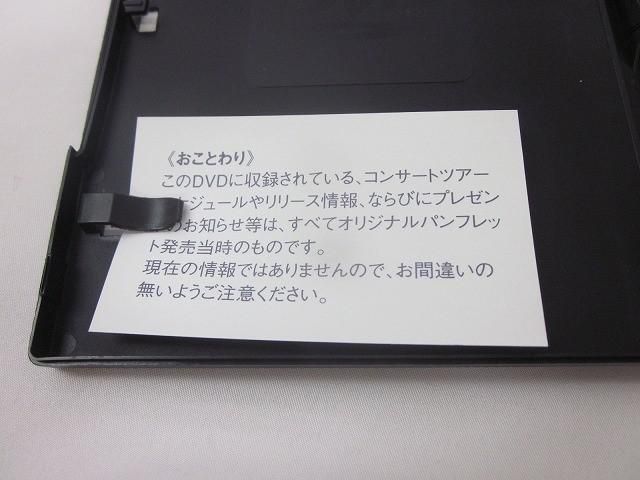 《おことわり》
このDVDに収録されている、コンサートツアー
ケジュールやリリース情報、ならびにプレゼン
のお知らせ等は、すべてオリジナルパンフレッ
ト発売当時のものです。
現在の情報ではありませんので、お間違いの
無いようご注意ください。